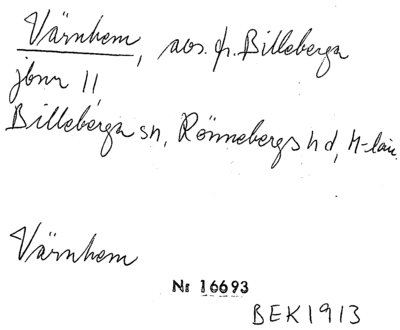 Värnhem, avs. fr. Billeberga
jbnr 11
Billeberga sn, Rönnebergs hd, M-län.
Värnhem
Nr 16693
BEK1913